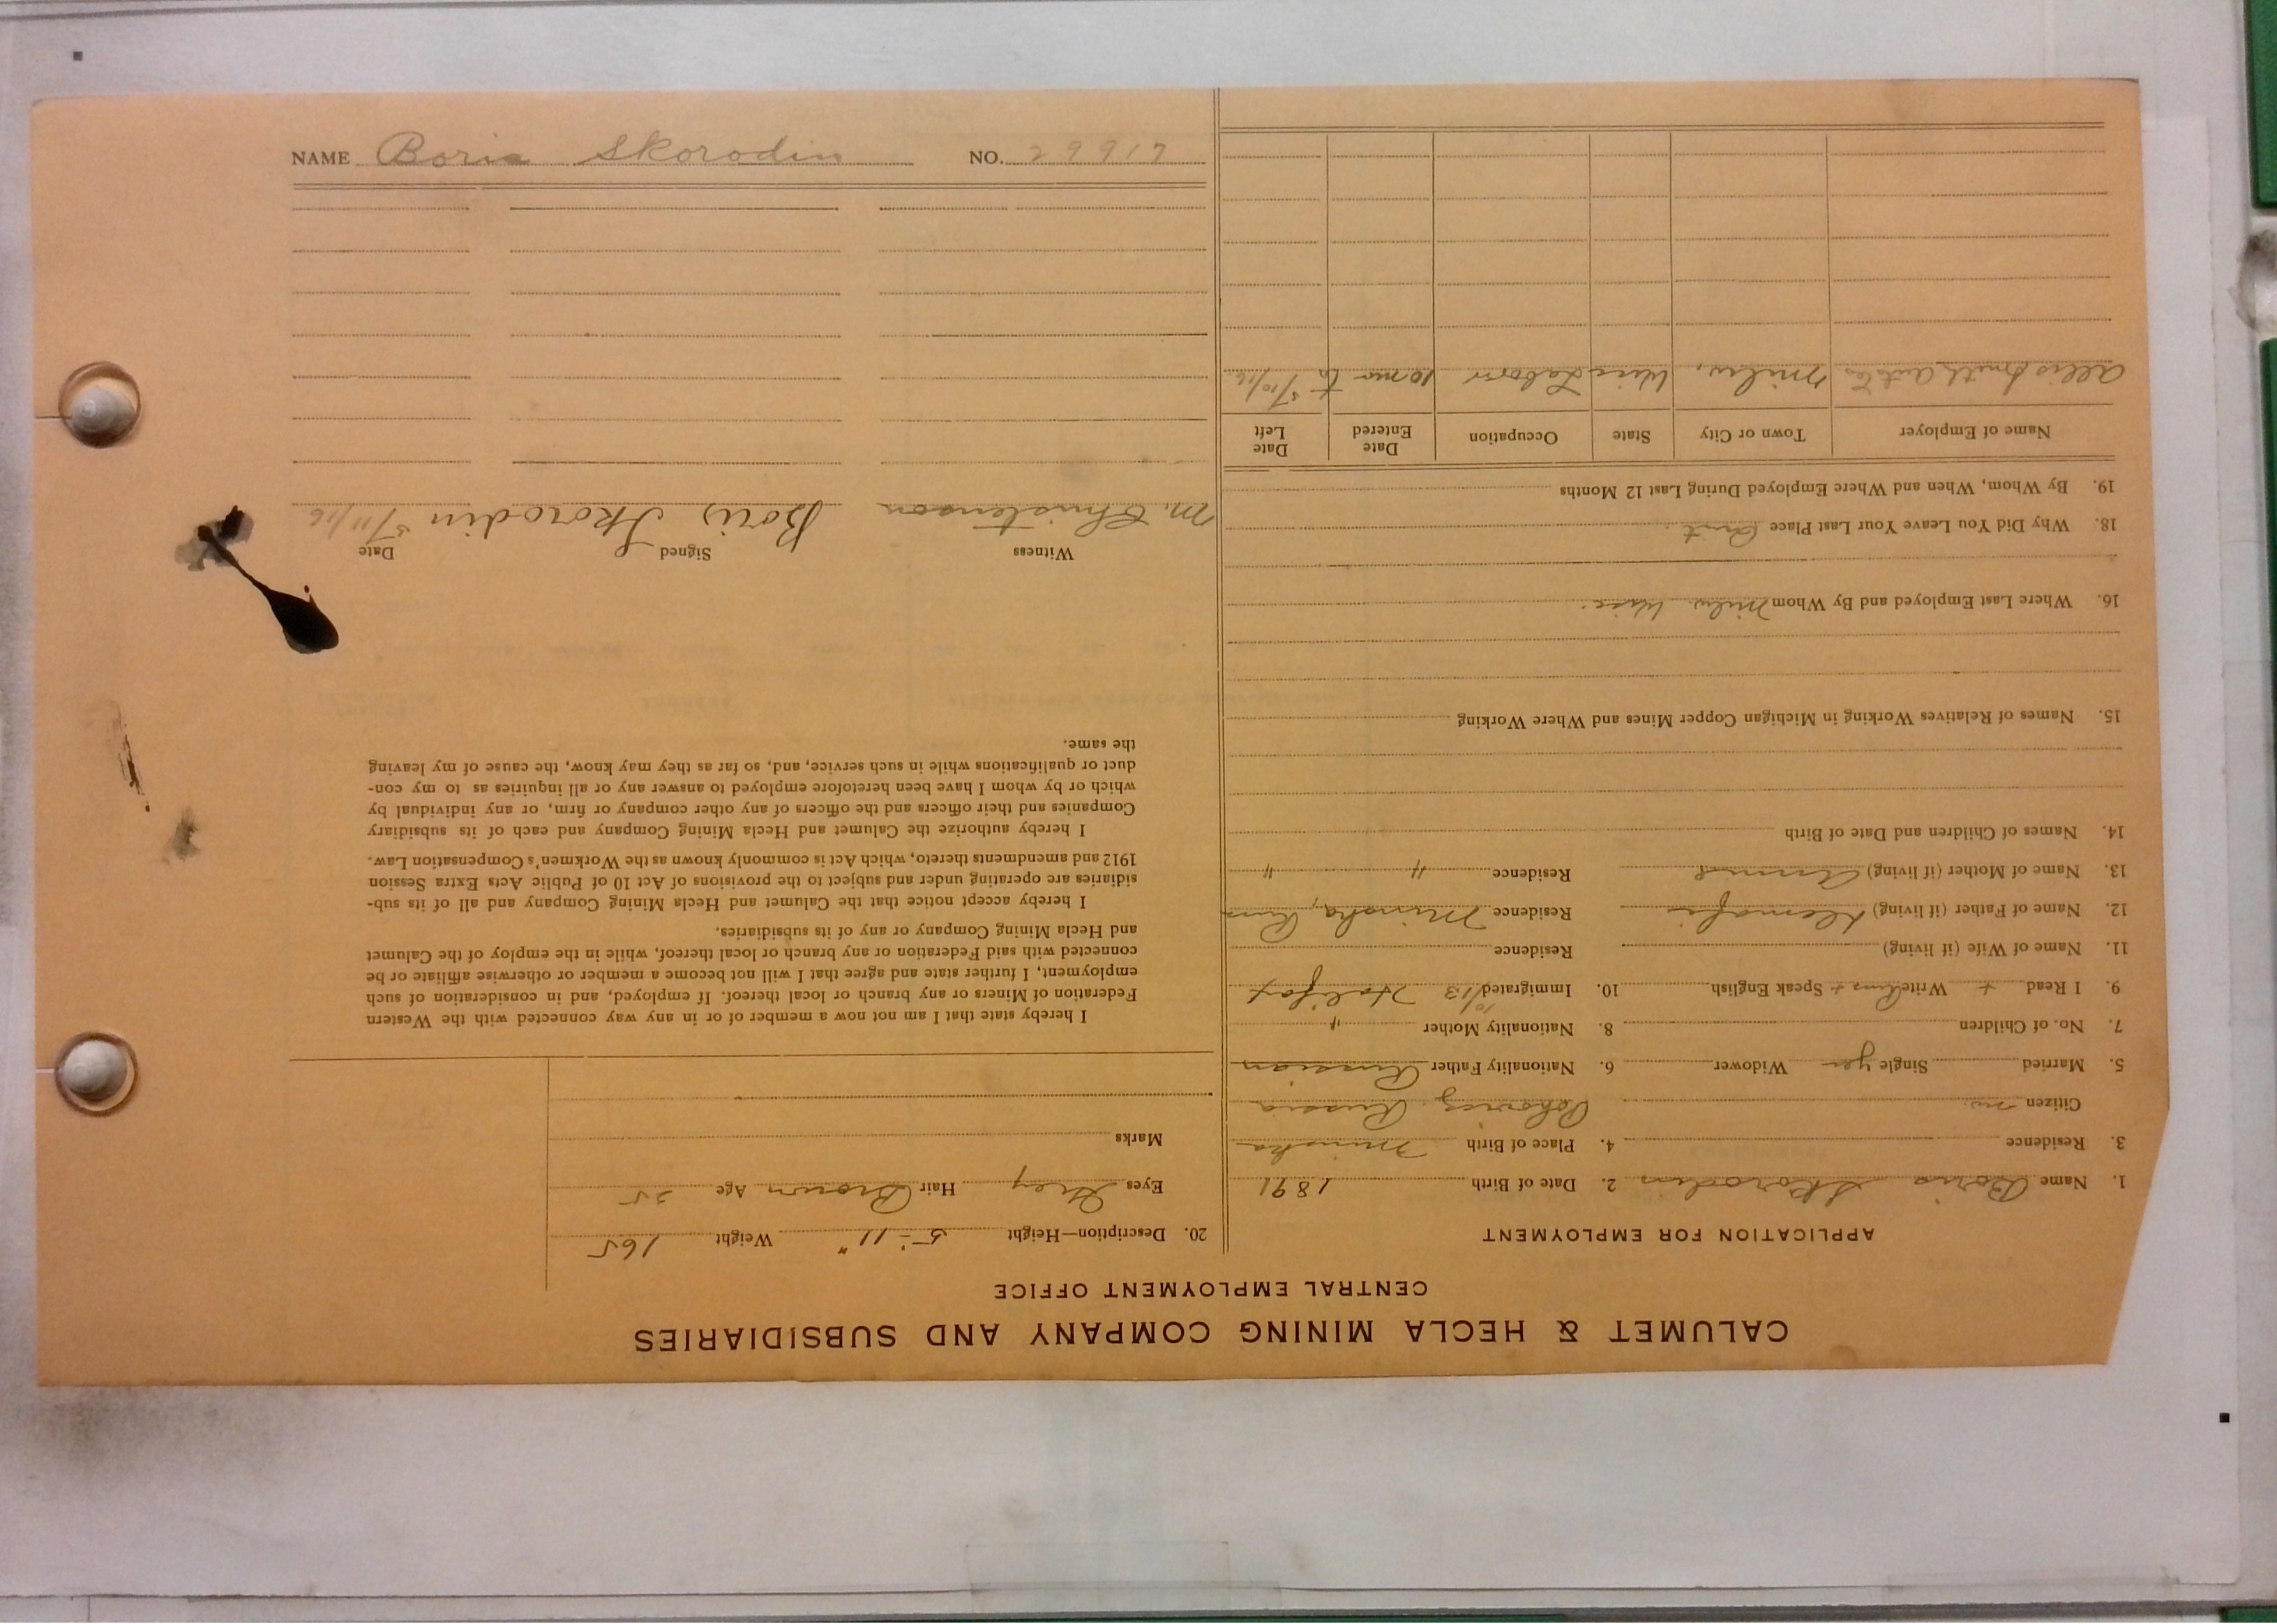 CALUMET & HECLA MINING COMPANY AND SUBSIDIARIES
CENTRAL EMPLOYMENT OFFICE
APPLICATION FOR EMPLOYMENT
1. Name Boris Skorodin 2. Date of Birth 1891
3. Residence 4. Place of Birth Minska
Citizen no Russia
5. Married Single yes Widower 6. Nationality Father Russian
7. No. of Children 8. Nationality Mother "
9. I Read + Write Russ + Speak English 10. Immigrated 10/13 Halifax
11. Name of Wife (if living) Residence
12. Name of Father (if living) Residence Minska, Russ
13. Name of Mother (if living) Residence " "
14. Names of Children and Date of Birth
15. Names of Relatives Working in Michigan Copper Mines and Where Working
16. Where Last Employed and By Whom Milw. Wisc.
18. Why Did You Leave Your Last Place
19. By Whom, When and Where Employed During Last 12 Months
Name of Employer Town or City State Occupation Date Entered Date Left
Smith Milw. Wisc Labor 10 mo to 5/10/16
20. Description—Height 5'-11" Weight 165
Eyes Grey Hair Brown Age 25
Marks
I hereby state that I am not now a member of or in any way connected with the Western
Federation of Miners or any branch or local thereof. If employed, and in consideration of such
employment, I further state and agree that I will not become a member or otherwise affiliate or be
connected with said Federation or any branch or local thereof, while in the employ of the Calumet
and Hecla Mining Company or any of its subsidiaries.
I hereby accept notice that the Calumet and Hecla Mining Company and all of its sub-
sidiaries are operating under and subject to the provisions of Act 10 of Public Acts Extra Session
1912 and amendments thereto, which Act is commonly known as the Workmen's Compensation Law.
I hereby authorize the Calumet and Hecla Mining Company and each of its subsidiary
Companies and their officers and the officers of any other company or firm, or any individual by
which or by whom I have been heretofore employed to answer any or all inquiries as to my con-
duct or qualifications while in such service, and, so far as they may know, the cause of my leaving
the same.
Witness Signed Date
M. Christenson Boris Skorodin 5/11/16
NAME Boris Skorodin NO. 29917